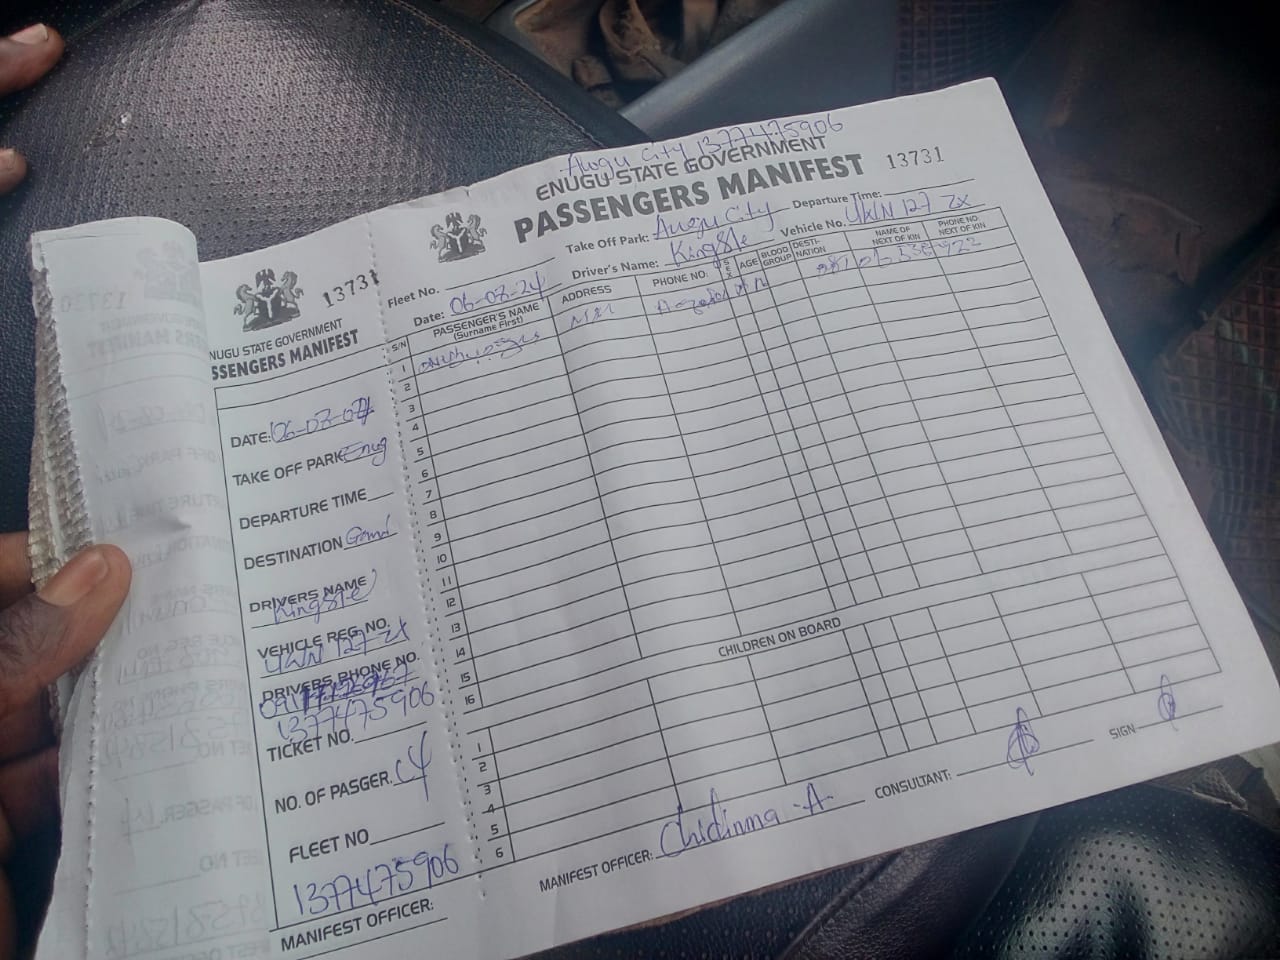 13731
ENUGU STATE GOVERNMENT
PASSENGERS MANIFEST
DATE: 06-08-024
TAKE OFF PARK Enug
DEPARTURE TIME
DESTINATION
DRIVERS NAME
Kingsle
VEHICLE REG. NO.
UWN 127 ZX
DRIVERS PHONE NO.
1377475906
TICKET NO.
NO. OF PASGER. 04
FLEET NO
1377475906
MANIFEST OFFICER:
Awgu City 1377475906
ENUGU STATE GOVERNMENT
PASSENGERS MANIFEST 13731
Fleet No. Take Off Park: Awgu City Departure Time:
Date: 06-08-24 Driver's Name: Kingsle Vehicle No. UWN 127 ZX
S/N PASSENGER'S NAME (Surname First) ADDRESS PHONE NO. SEX AGE BLOOD GROUP DESTINATION NAME OF NEXT OF KIN PHONE NO. NEXT OF KIN
1
2
3
4
5
6
7
8
9
10
11
12
13
14
15
16
CHILDREN ON BOARD
1
2
3
4
5
6
MANIFEST OFFICER: Chidinma A. CONSULTANT: SIGN